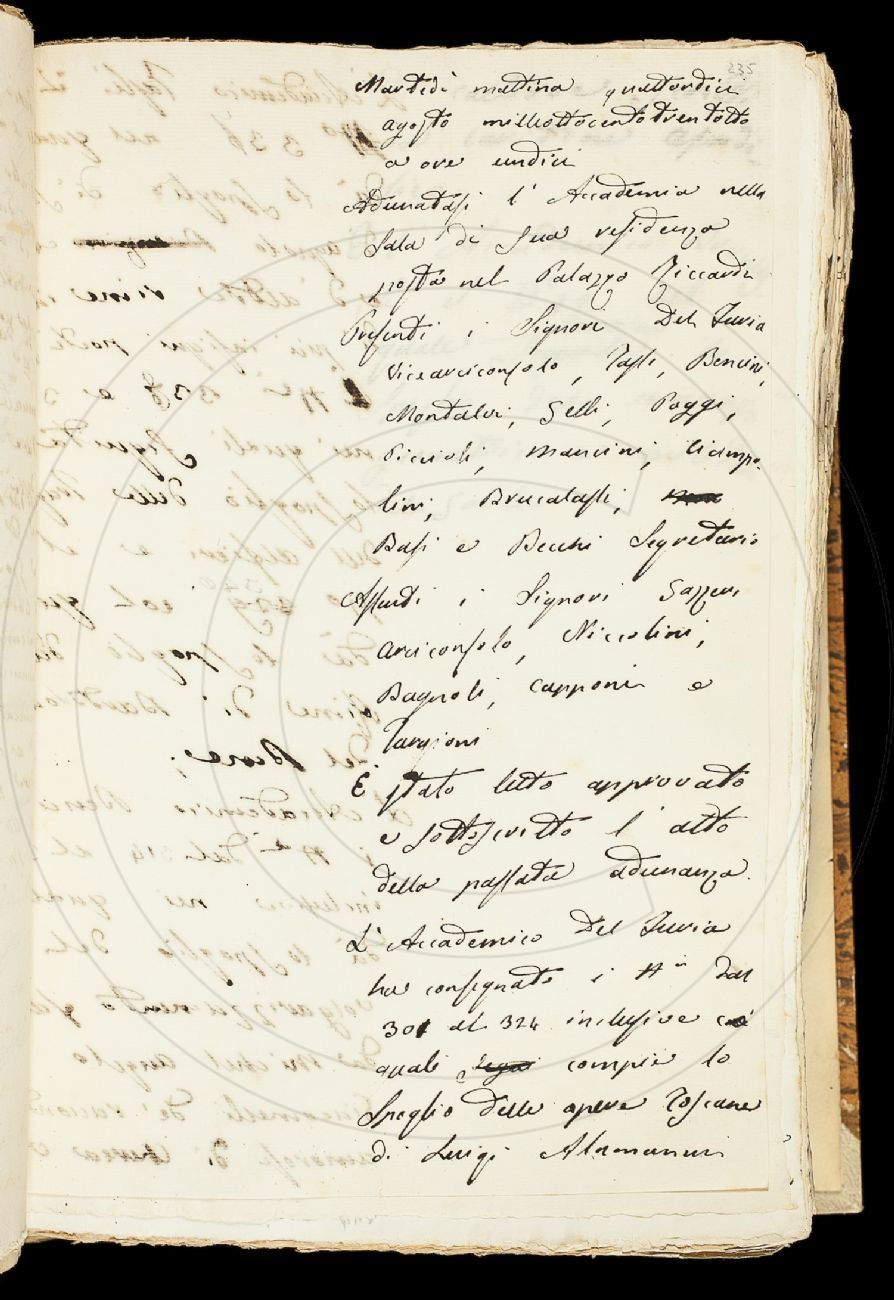 235
Martedì mattina quattordici
agosto milleottocentotrentotto
a ore undici
Adunatasi l' Accademia nella
Sala di Sua residenza
posta nel Palazzo Riccardi
Presenti i Signori Del Furia
Vicearciconsolo, Tassi, Bencini,
Montalvi, Selli, Poggi,
Piccioli, Mancini, Ciampo-
lini, Brucalassi,
Basi e Becchi Segretario
Assenti i Signori Gazzeri
Arciconsolo, Niccolini,
Bagnoli, Capponi e
Targioni
È stato letto approvato
e sottoscritto l' atto
della passata adunanza.
L' Accademico Del Furia
ha consegnato i Ni dal
301 al 324 inclusive coi
quali compie lo
Spoglio delle opere Toscane
di Luigi Alamanni